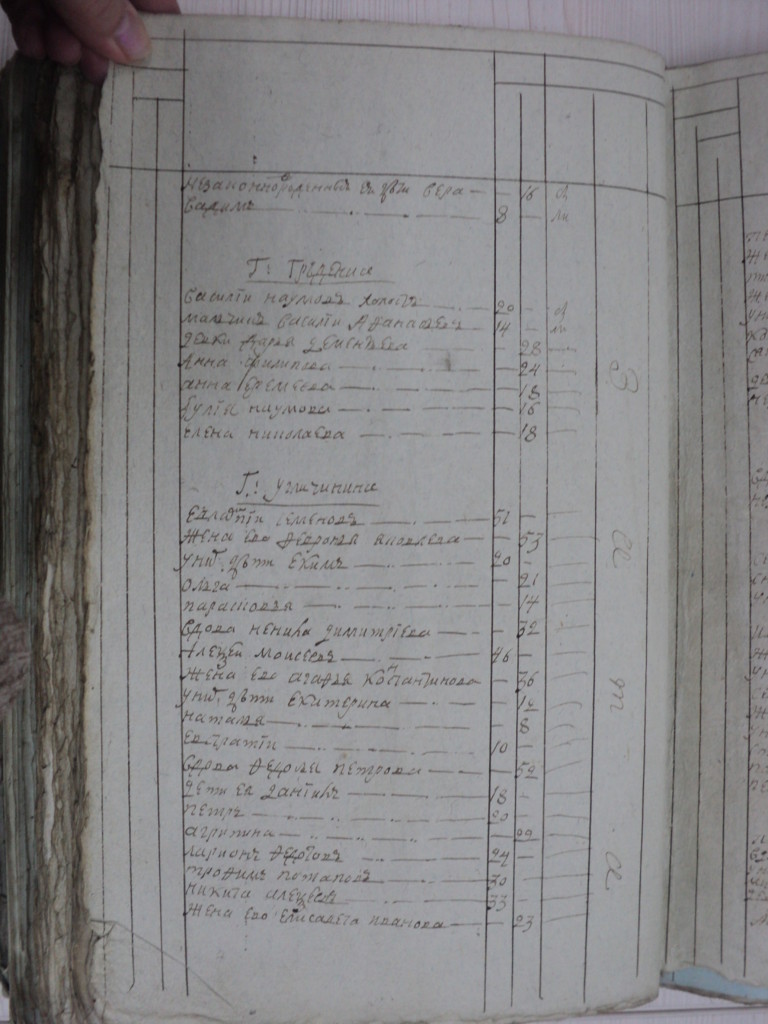 незаконнорожденныя ея дѣти Вера — 16
Вадимъ — 8
Г: Гредение
Василiи Наумовъ холостъ — 20
малчикъ Василiи Афанасьевъ — 14
девки Дарья Дементьева — 28
Анна Филипова — 24
Анна Еремеева — 18
Наумова — 16
Елена Николаева — 18
Г: Угличинина
Евлампiи Семеновъ — 51
Жена ево Феврон‍ья Яковлева — 53
У них дѣти Екимъ — 20
Ольга — 21
Парасковья — 14
Вдова Ненила Димитрiева — 32
Алексеи Моисеевъ — 46
Жена ево Агафья Костантинова — 36
У них дѣти Екатерина — 12
Наталья — 8
Евстратiи — 10
Вдова Федосья Петрова — 52
дети ея — 18
Петръ — 20
Агрипина — 22
Ларионъ Федотовъ — 24
Трофимъ Потаповъ — 30
Никита Алексеевъ — 33
Жена ево Елисавета Иванова — 23